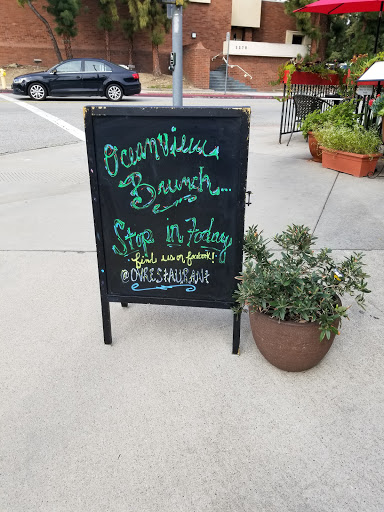 Oceanview
Brunch...
Stop in Today
find us on facebook!
@OVRESTAURANT